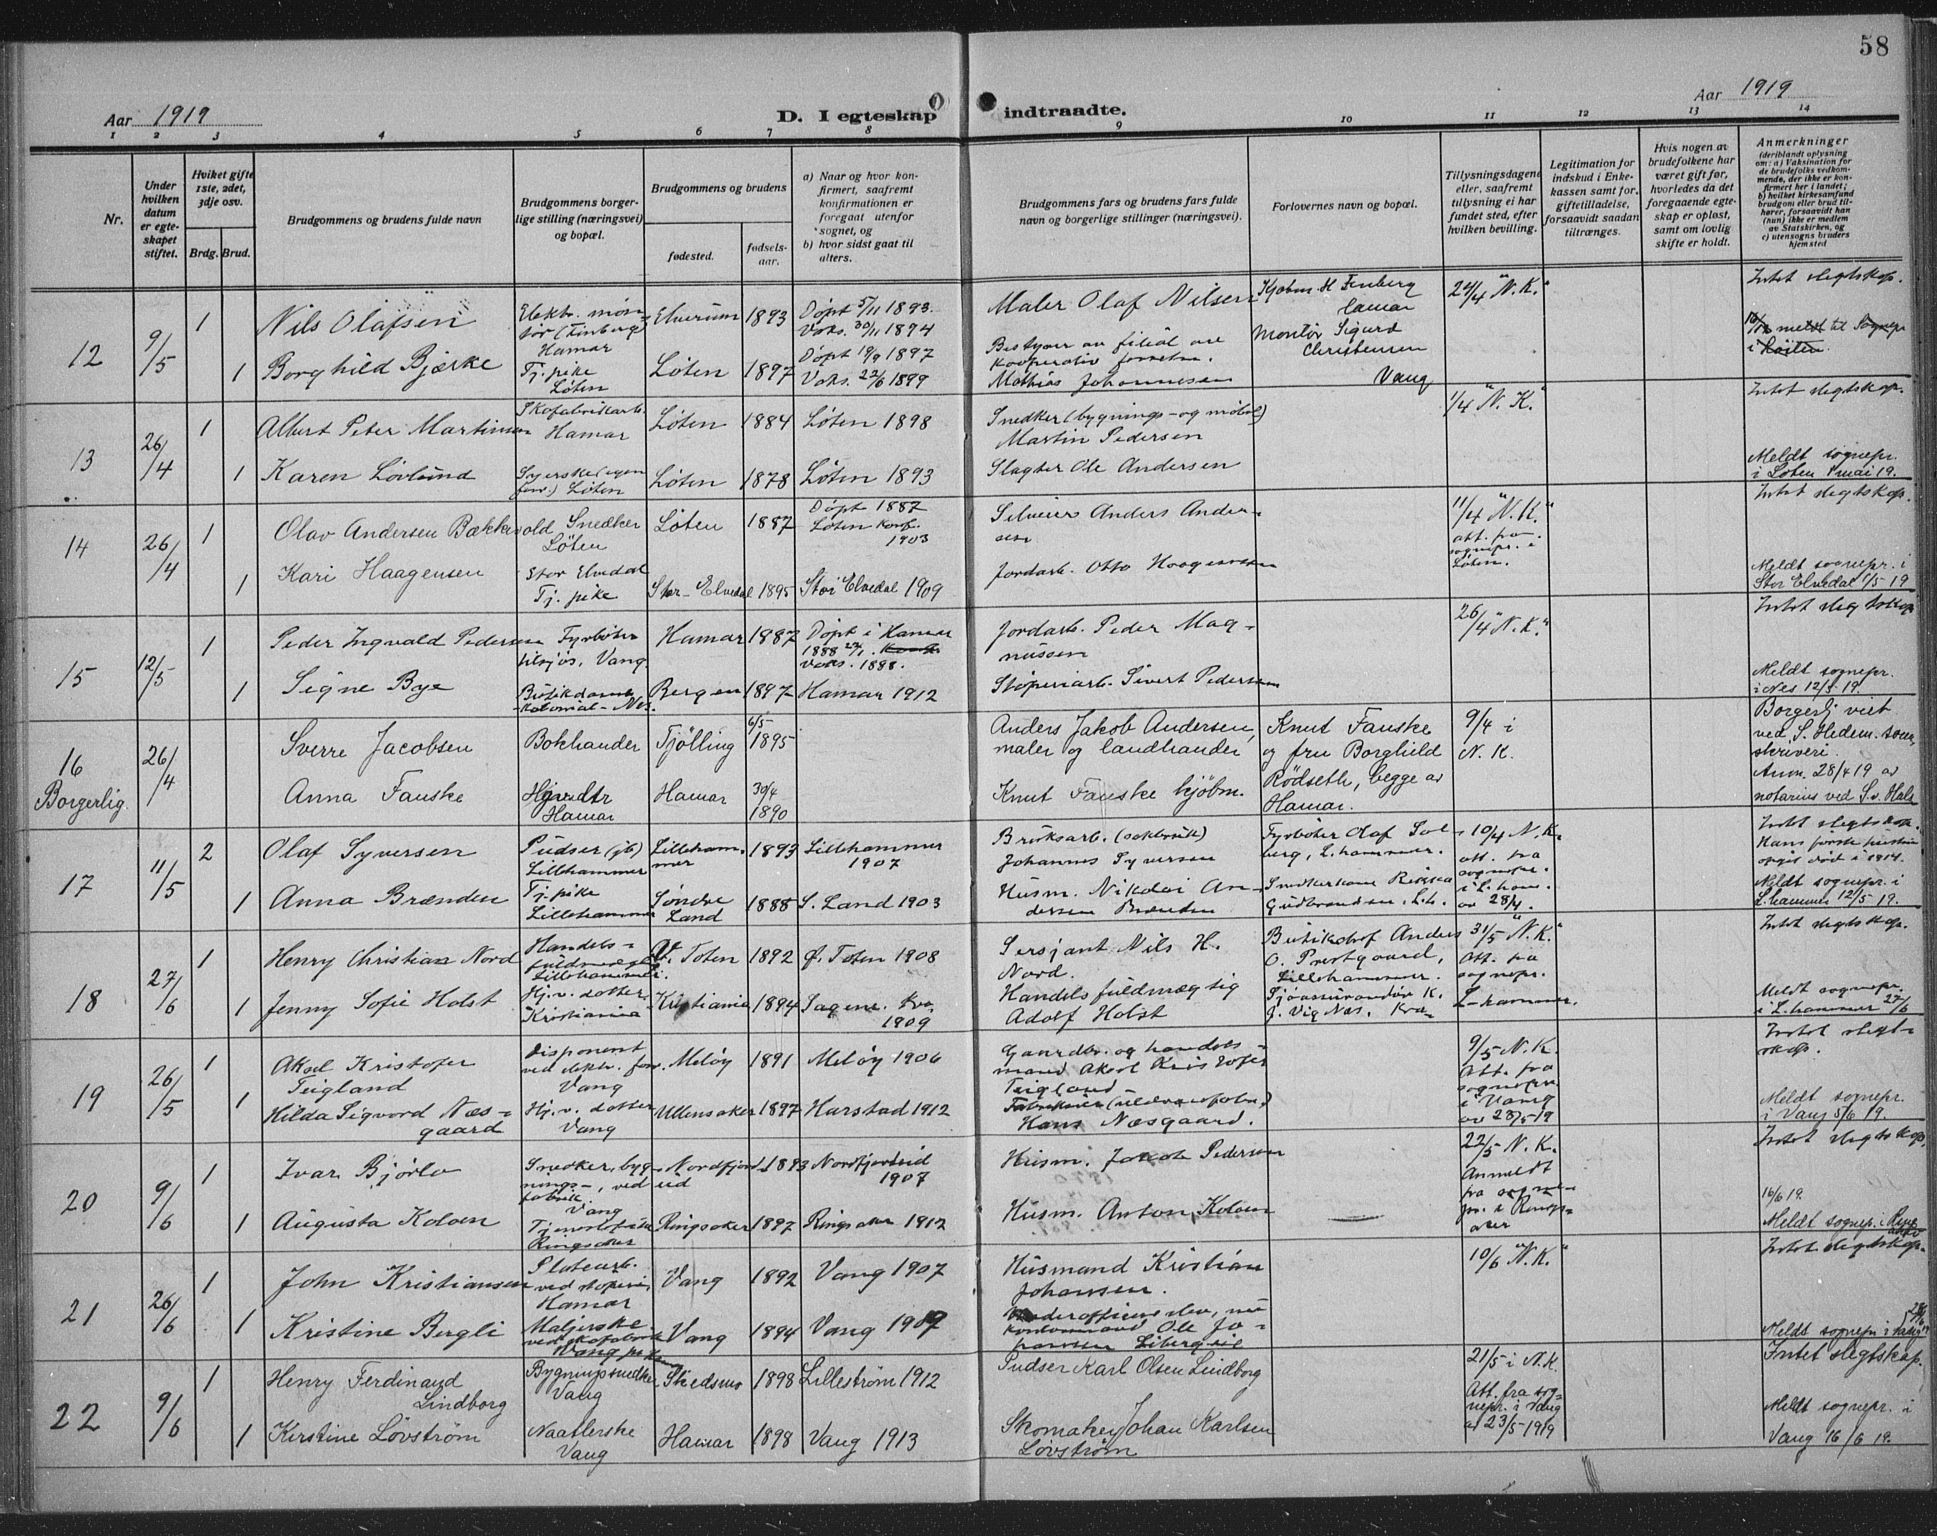 58
Aar 1919
D. I egteskap indtraadte.
Aar 1919
1 2 3 4 5 6 7 8 9 10 11 12 13 14
Nr.
Under hvilken datum er egteskapet stiftet.
Hviket gifte 1ste, 2det, 3dje osv.
Brdg. Brud.
Brudgommens og brudens fulde navn
Brudgommens borgerlige stilling (næringsvei) og bopæl.
Brudgommens og brudens
fødested.
fødselsaar.
a) Naar og hvor konfirmert, saafremt konfirmationen er foregaat utenfor sognet, og
b) hvor sidst gaat til alters.
Brudgommens fars og brudens fars fulde navn og borgerlige stillinger (næringsvei).
Forlovernes navn og bopæl.
Tillysningsdagene eller, saafremt tillysning ei har fundet sted, efter hvilken bevilling.
Legitimation for indskud i Enkekassen samt for giftetilladelse, forsaavidt saadan tiltrænges.
Hvis nogen av brudefolkene har været gift før, hvorledes da det foregaaende egteskap er opløst, samt om lovlig skifte er holdt.
Anmerkninger
(deriblandt oplysning om: a) Vaksination for de brudefolks vedkommende, der ikke er konfirmert her i landet; b) hvilket kirkesamfund brudgom eller brud tilhører, forsaavidt han (hun) ikke er medlem av Statskirken, og c) utensogns bruders hjemsted
12 9/5
1 Nils Olafsen Hamar Elverum 1893 Døpt 5/11 1893. Maler Olaf Nilsen Hamar 24/4 "N.K." Intet slegtskap.
1 Borghild Bjærke Tj. pike Løten Løten 1897 Døpt 19/9 1897 Vaks. 22/6 1899 Mathias Johannesen Montør Sigurd Christensen Vang
13 26/4
1 Albert Peter Martinsen Skofabrikarb. Hamar Løten 1884 Løten 1898 Snedker (bygnings- og møbel) Martin Pedersen 1/4 "N.K." Intet slegtskap.
1 Karen Løvlund Løten Løten 1878 Løten 1893 Slagter Ole Andersen Meldt sognepr. i Løten 1 mai 19.
14 26/4
1 Olav Andersen Bækkevold Snedker Løten Løten 1887 Døpt 1887 Løten Konf. 1903 Anders Andersen 11/4 "N.K." att. fra sognepr. i Løten. Intet slegtskap.
1 Kari Haagensen Stor Elvedal Tj. pike Stor-Elvedal 1895 Stor Elvedal 1909 Jordarb. Otto Haagensen Meldt sognepr. i Stor Elvedal 1/5 19
15 12/5
1 Peder Ingvald Pedersen Fyrbøter Vang. Hamar 1887 Døpt i Hamar 1888 Vaks. 1888. Jordarb. Peder Magnussen 26/4 "N.K." Intet slegtskap
1 Signe Bye Butikdame kolonial - Nes. Bergen 1897 Hamar 1912 Støperiarb. Sivert Pedersen Meldt sognepr. i Nes 12/5 19.
16 Borgerlig. 26/4
Sverre Jacobsen Bokhandler Tjølling 6/5 1895 Anders Jakob Andersen, maler og landhandler Knut Fauske og fru Borghild Rödseth, begge av Hamar. 9/4 i N.K. Borgerlj viet ved S. Hedem. sorenskriveri. Anm. 28/4 19 av notarius ved S. Hals
Anna Fauske Hamar Hamar 30/4 1890 Knut Fauske kjøbm.
17 11/5
2 Olaf Syversen Pudser (jb) Lillehammer Lillehammer 1893 Lillehammer 1907 Bruksarb. Johannes Syversen Fyrbøter Olaf Solberg, L.hammer. 10/4 N.K. att. fra sognepr. i L.ham. av 28/4. Intet slegtskap. Hans første hustru døde i 1914.
1 Anna Brænden Tj. pike Lillehammer Søndre Land 1888 S. Land 1903 Husm. Nikolai Andersen Brænden Gudbrandsen, L.h. Meldt sognepr. i L.hammer 12/5 19.
18 27/6
1 Henry Christian Nord Handelsfuldmægtig Lillehammer. V. Toten 1892 Ø. Toten 1908 Sersjant Nils H. Nord. Anders O. Prestgaard, Lillehammer. 31/5 "N.K." Att. fra sognepr. L-hammer. Intet slegtskap.
1 Jenny Sofie Holst Hj. v. dotter. Kristiania Kristiania 1894 Sagene. Kra. 1909 Handelsfuldmægtig Adolf Holst J. Vig Næs. Kra Meldt sognepr. i L.hammer 27/6
19 26/5
1 Aksel Kristofer Teigland Disponent ved elektr. forr. Vang Meløy 1891 Meløy 1906 Gaardbr. og handelsmand Aksel Kristofer Teigland 9/5 N.K. Att. fra sognepr. i Vang av 23/5-19 Intet slegtskap.
1 Hilda Sigvord Næsgaard Hj. v. dotter Vang Ullensaker 1897 Harstad 1912 Hans Næsgaard. Meldt sognepr. i Vang 5/6 19.
20 9/6
1 Ivar Bjørlo Snedker, bygnings-, ved fabrik. Vang Nordfjordeid 1893 Nordfjordeid 1907 Husm. Jakob Pedersen 22/5 N.K. Anmeldt fra sognepr. i Ringsaker Intet slegtskap.
1 Augusta Koloen Ringsaker Ringsaker 1897 Ringsaker 1912 Husm. Anton Koloen 16/6 19. Meldt sognepr. i Ringsaker
21 26/6
1 John Kristiansen Platearb. ved støperi, Hamar Vang 1892 Vang 1907 Husmand Kristian Johansen. 10/6 "N.K." Intet slegtskap.
1 Kristine Bergli Vang 1894 Vang 1909 Ole Johansen Meldt sognepr. i Vang 28/6 19
22 9/6
1 Henry Ferdinand Lindborg Bygningssnedker Vang Skedsmo 1898 Lillestrøm 1912 Pudser Karl Olsen Lindborg 21/5 i N.K. Att. fra sognepr. i Vang av 23/5-1919 Intet slegtskap.
1 Kirstine Lövström Naatlerske Vang Hamar 1898 Vang 1913 Skomaker Johan Karlsen Lövström Meldt sognepr. i Vang 16/6 19.